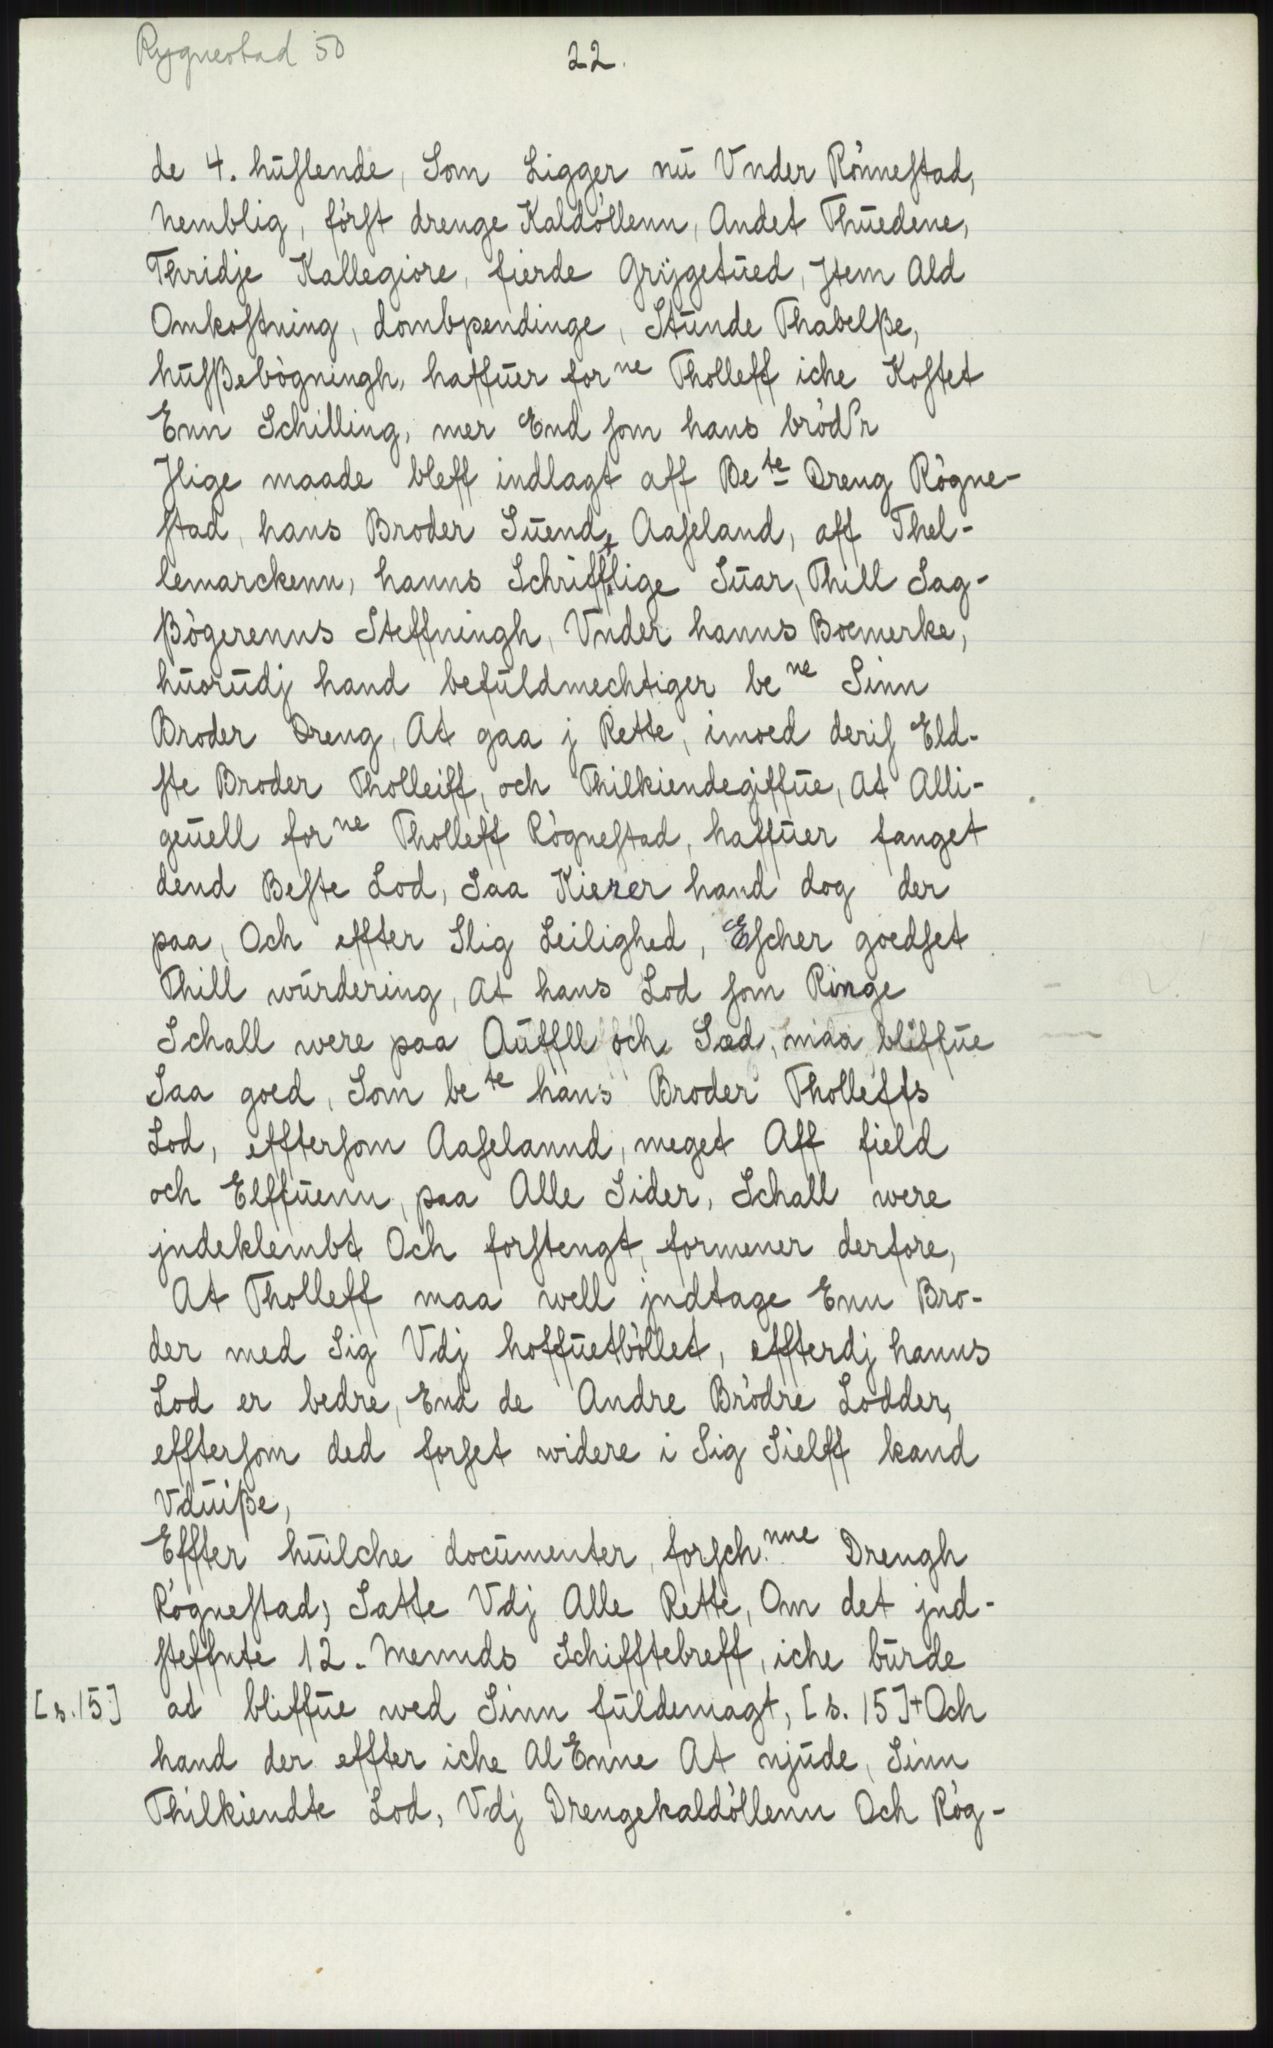 Rygnestad 50
22.
de 4. huslende, Som Ligger nu Vnder Rönnestad,
Nemblig, först drenge Kaldöllenn, Andet Thuedene,
Thridje Kallegiore, fierde Grÿgetued, Jtem Ald
Omkostning, dombpendinge, Stunde Thabelße,
husßebögningh, haffuer forne Tholleff iche Kostet
Enn Schilling, mer End som hans bröd'r
Jlige maade bleff indlagt aff Bete Dreng Rögne-
stad, hans Broder Suend, Aaseland, aff Thel-
lemarckenn, hanns Schrifftlige Suar, Thill Sag-
ßögerenns Steffningh, Vnder hanns Boemerke,
huorudj hand befuldmechtiger bene Sinn
Broder Dreng, At gaa j Rette, imoed deris Eld-
ste Broder Tholleiff, och Thilkiendegiffue, At Alli-
geuell forne Tholleff Rögnestad, haffuer fanget
dend Beste Lod, Saa Kierer hand dog der
paa, Och effter Slig Leilighed, Escher goedset
Thill wurdering, At hans Lod som Ringe
Schall were paa Auffll och Sæd, maa bliffue
Saa goed, Som bete hans Broder Tholleffs
Lod, efftersom Aaselannd, meget Aff field
och Elffuenn, paa Alle Sider, Schall were
jndeklembt Och forstengt, formener derfore,
At Tholleff maa well jndtage Enn Bro-
der med Sig Vdj hoffuetböllet, effterdj hanns
Lod er bedre, End de Andre Brödre Lodder,
efftersom ded forset widere i Sig Sielff kand
Vduiße,
Effter huilche documenter, forsch.nne Drengh
Rögnestad, Satte Vdj Alle Rette, Om det jnd-
steffnte 12. Mennds Schifftebreff, iche burde
[s. 15] at bliffue wed Sinn fuldemagt, [s. 15] + Och
hand der effter iche Al Enne At njude, Sinn
Thilkiendte Lod, Vdj Drengekaldöllenn Och Rög-